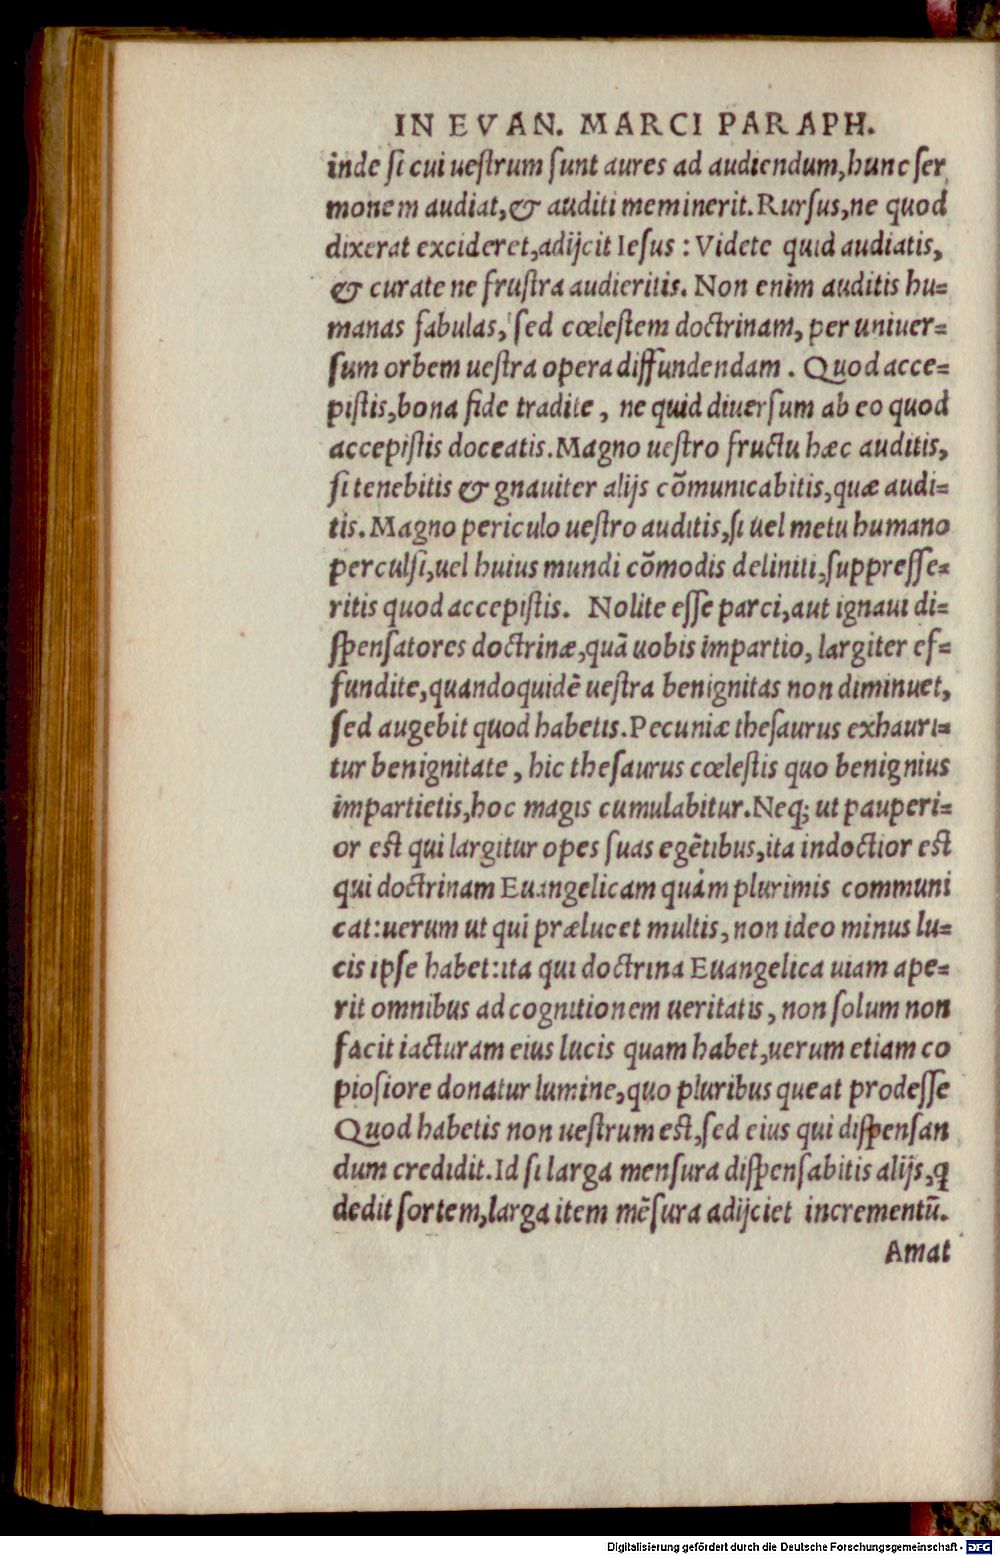 IN EVAN. MARCI PARAPH.
inde ſi cui ueſtrum ſunt aures ad audiendum, hunc ſer
monem audiat, & auditi meminerit. Rurſus, ne quod
dixerat excideret, adijcit Ieſus : Videte quid audiatis,
& curate ne fruſtra audieritis. Non enim auditis hu=
manas fabulas, ſed cœleſtem doctrinam, per uniuer=
ſum orbem ueſtra opera diffundendam . Quod acce=
piſtis, bona fide tradite , ne quid diuerſum ab eo quod
accepiſtis doceatis. Magno ueſtro fructu hæc auditis,
ſi tenebitis & gnauiter alijs cõmunicabitis, quæ audi=
tis. Magno periculo ueſtro auditis, ſi uel metu humano
perculſi, uel huius mundi cõmodis deliniti, ſuppreſſe=
ritis quod accepiſtis. Nolite eſſe parci, aut ignaui di=
ſpenſatores doctrinæ, quã uobis impartio, largiter ef=
fundite, quandoquidẽ ueſtra benignitas non diminuet,
ſed augebit quod habetis. Pecuniæ theſaurus exhauri=
tur benignitate , hic theſaurus cœleſtis quo benignius
impartietis, hoc magis cumulabitur. Neq; ut pauperi=
or eſt qui largitur opes ſuas egẽtibus, ita indoctior eſt
qui doctrinam Euangelicam quám plurimis communi
cat: uerum ut qui prælucet multis, non ideo minus lu=
cis ipſe habet: ita qui doctrina Euangelica uiam ape=
rit omnibus ad cognitionem ueritatis , non ſolum non
facit iacturam eius lucis quam habet, uerum etiam co
pioſiore donatur lumine, quo pluribus queat prodeſſe
Quod habetis non ueſtrum eſt, ſed eius qui diſpenſan
dum credidit. Id ſi larga menſura diſpenſabitis alijs, ꝗ
dedit ſortem, larga item mẽſura adijciet incrementũ.
Amat
Digitalisierung gefördert durch die Deutsche Forschungsgemeinschaft - DFG